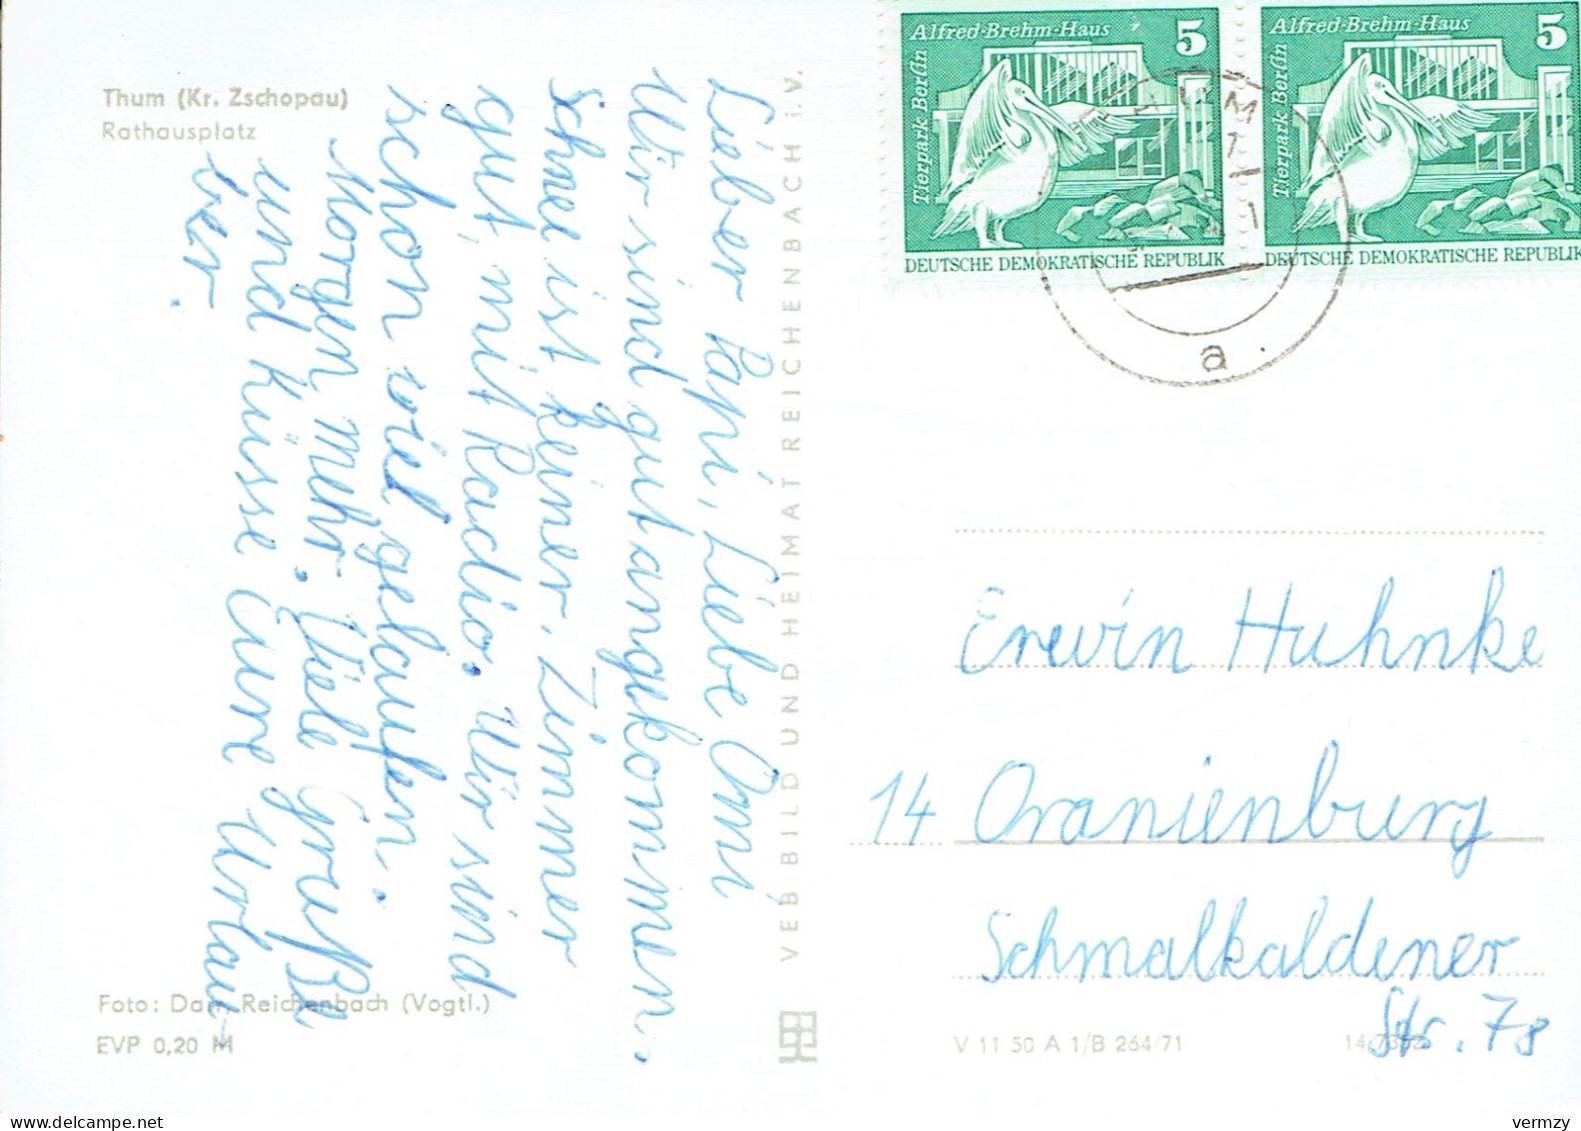 Thum (Kr. Zschopau)
Rathausplatz
Lieber Papi, Liebe Omi
Wir sind gut angekommen.
Schnee ist keiner. Zimmer
gut, mit Radio. Wir sind
schon viel gelaufen.
Morgen mehr. Viele Grüße
und Küsse Eure Urlau-
ber.
Foto: Darr, Reichenbach (Vogtl.)
EVP 0,20 M
VEB BILD UND HEIMAT REICHENBACH i.V.
Alfred-Brehm-Haus 5
Tierpark Berlin
DEUTSCHE DEMOKRATISCHE REPUBLIK
Alfred-Brehm-Haus 5
Tierpark Berlin
DEUTSCHE DEMOKRATISCHE REPUBLIK
a
Erwin Huhnke
14 Oranienburg
Schmalkaldener
Str. 78
V 11 50 A 1/B 264/71